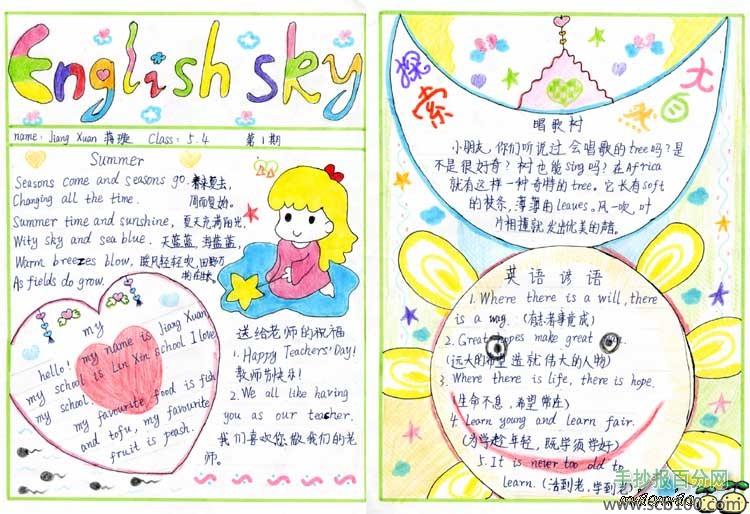 English sky
name: Jiang Xuan 蒋璇 Class: 5.4 第1期
Summer
Seasons come and seasons go. 春来夏去,
Changing all the time. 周而复始。
Summer time and sunshine, 夏天充满阳光,
Wity sky and sea blue. 天蓝蓝, 海蓝蓝,
Warm breezes blow, 暖风轻轻吹,
As fields do grow.
my
hello! my name is Jiang Xuan
my school is Lin Xin school I love
my school.
my favourite food is fish
and tofu, my favourite
fruit is peash.
送给老师的祝福
1. Happy Teachers' Day!
教师节快乐!
2. We all like having
you as our teacher.
我们喜欢您做我们的老
师。
探索
大
唱歌树
小朋友,你们听说过会唱歌的tree吗?是
不是很好奇?树也能sing吗?在Africa
就有这样一种奇特的tree。它长有soft
的枝条,薄薄的leaves。风一吹,叶
片相撞就发出优美的
英语谚语
1. Where there is a will, there
is a way. (有志者事竟成)
2. Great hopes make great
(远大的希望造就伟大的人物)
3. Where there is life, there is hope.
(生命不息,希望常在)
4 Learn young and learn fair.
(为学趁年轻,既学须学好)
5. It is never too old to
learn. (活到老,学到老)
手抄报百分网
www.scb100.com